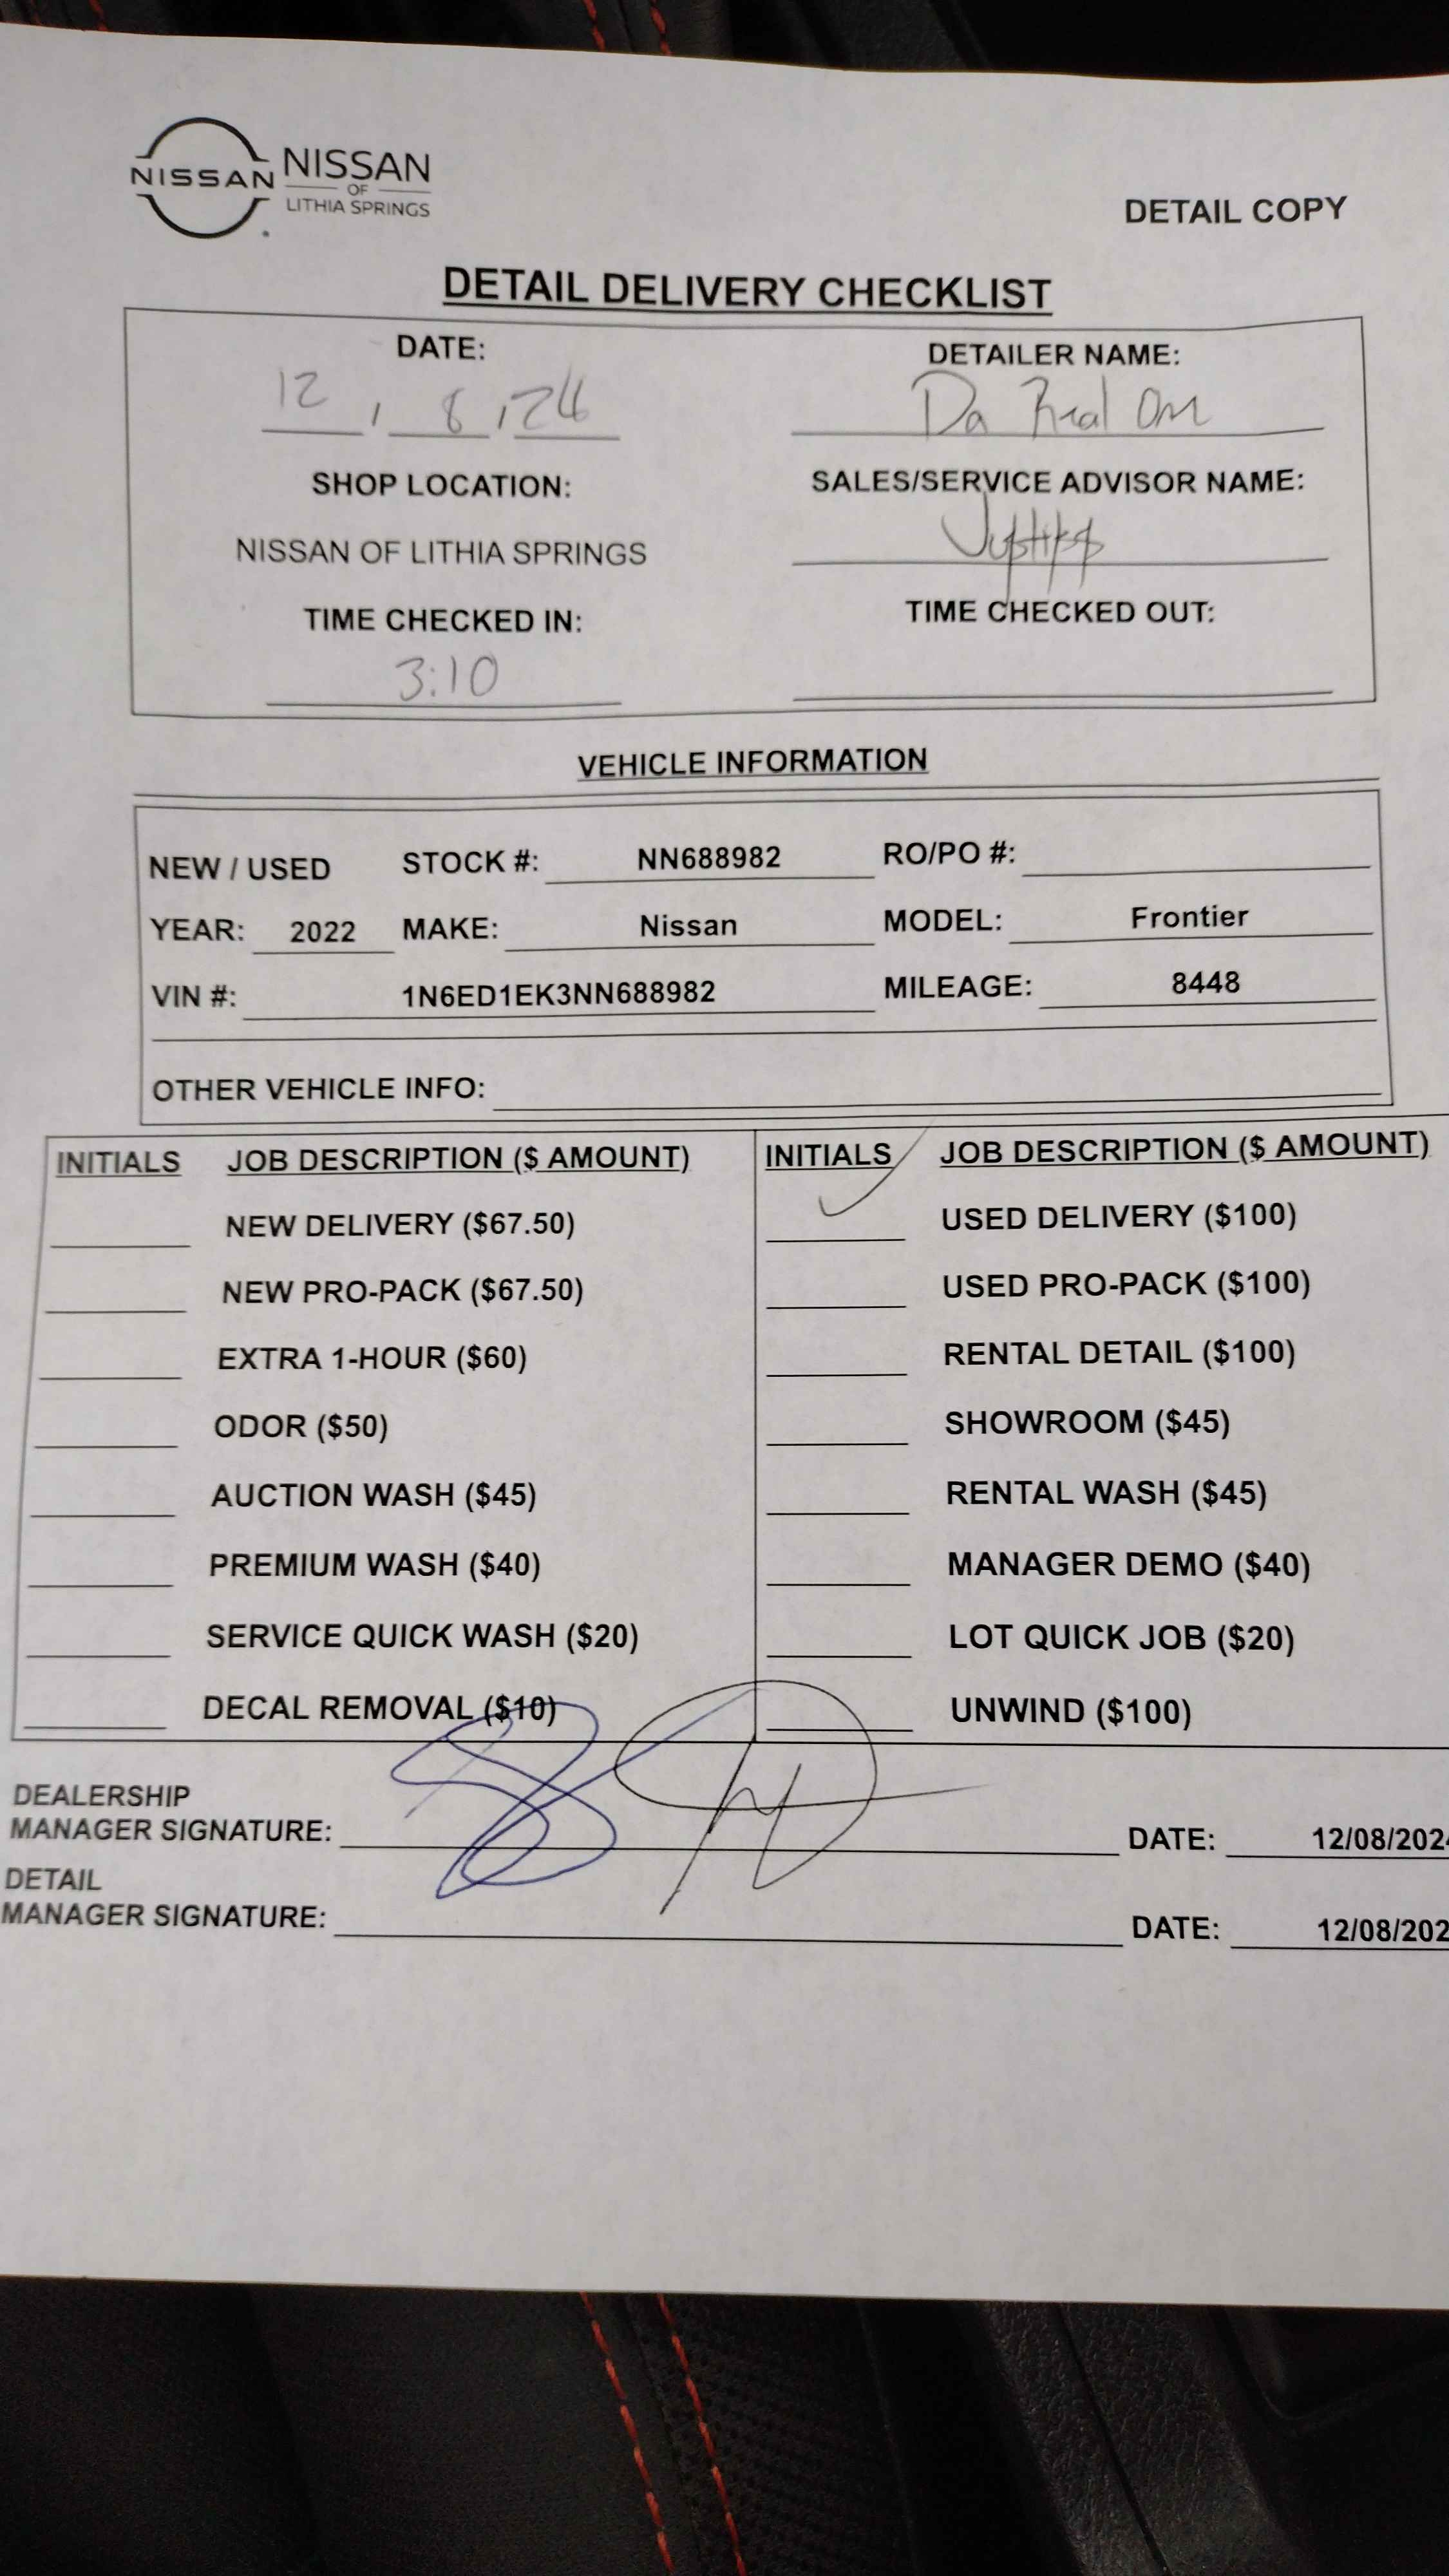 NISSAN
NISSAN
OF
LITHIA SPRINGS
DETAIL COPY
DETAIL DELIVERY CHECKLIST
DATE: DETAILER NAME:
12 / 8 / 24 Da Real One
SHOP LOCATION: SALES/SERVICE ADVISOR NAME:
NISSAN OF LITHIA SPRINGS
TIME CHECKED IN: TIME CHECKED OUT:
3:10
VEHICLE INFORMATION
NEW / USED STOCK #: NN688982 RO/PO #:
YEAR: 2022 MAKE: Nissan MODEL: Frontier
VIN #: 1N6ED1EK3NN688982 MILEAGE: 8448
OTHER VEHICLE INFO:
INITIALS JOB DESCRIPTION ($ AMOUNT) INITIALS JOB DESCRIPTION ($ AMOUNT)
NEW DELIVERY ($67.50) ✓ USED DELIVERY ($100)
NEW PRO-PACK ($67.50) USED PRO-PACK ($100)
EXTRA 1-HOUR ($60) RENTAL DETAIL ($100)
ODOR ($50) SHOWROOM ($45)
AUCTION WASH ($45) RENTAL WASH ($45)
PREMIUM WASH ($40) MANAGER DEMO ($40)
SERVICE QUICK WASH ($20) LOT QUICK JOB ($20)
DECAL REMOVAL ($10) UNWIND ($100)
DEALERSHIP
MANAGER SIGNATURE: DATE: 12/08/202
DETAIL
MANAGER SIGNATURE: DATE: 12/08/202